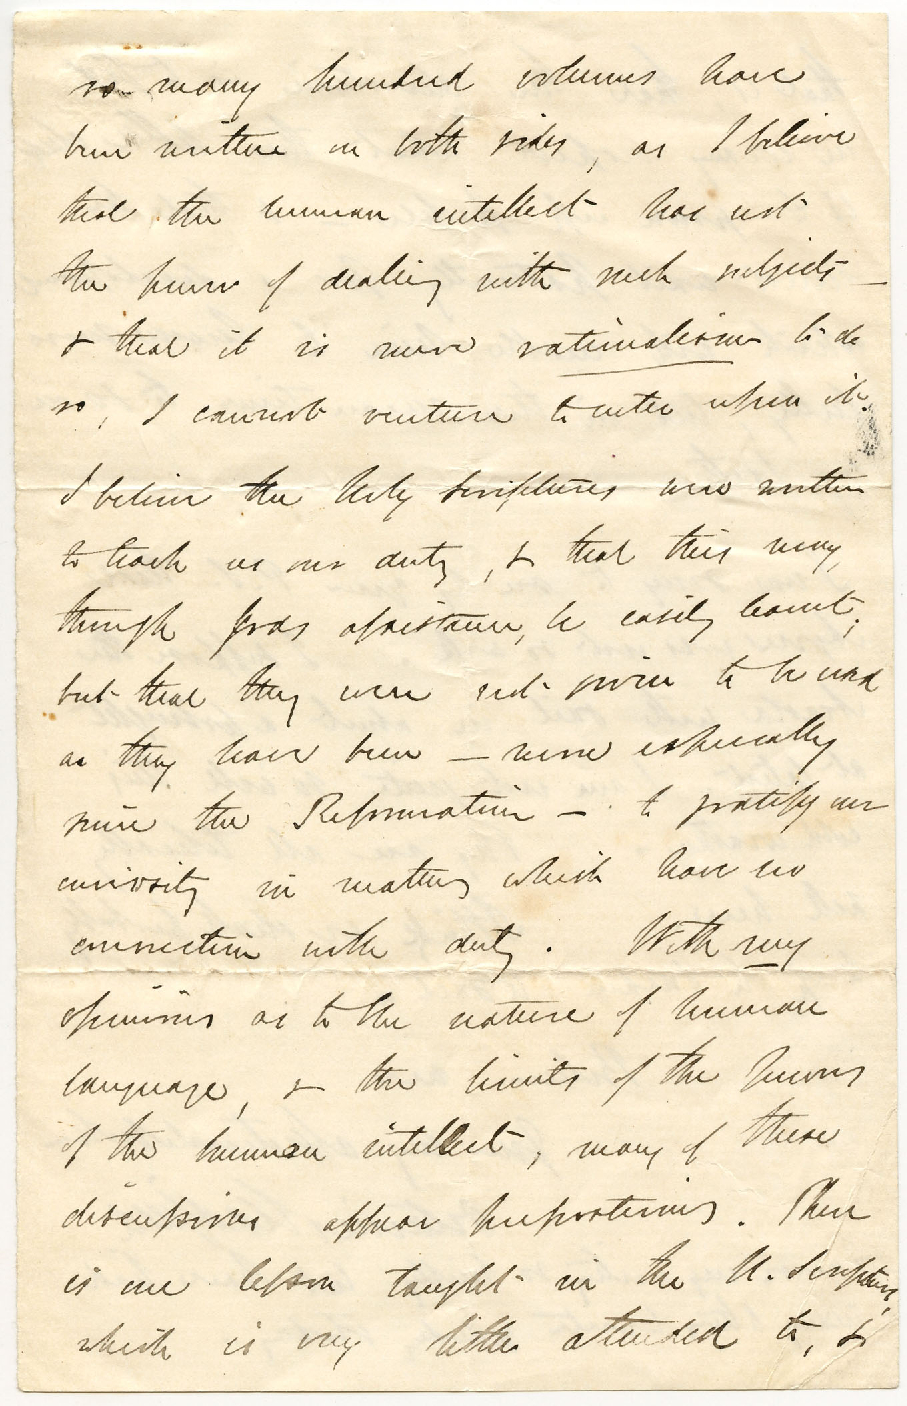 so many hundred volumes have
been written on both sides, as I believe
that the human intellect has not
the power of dealing with such subjects —
& that it is mere rationalism to do
so, I cannot venture to enter upon it.
I believe the Holy Scriptures were written
to teach us our duty, & that this may,
through Gods assistance, be easily learnt;
but that they were not given to be used
as they have been — more especially
since the Reformation — to gratify our
curiosity in matters which have no
connection with duty. With my
opinions as to the nature of human
language, & the limits of the powers
of the human intellect, many of these
discussions appear preposterous. There
is one lesson taught in the H. Scriptures,
which is very little attended to, &